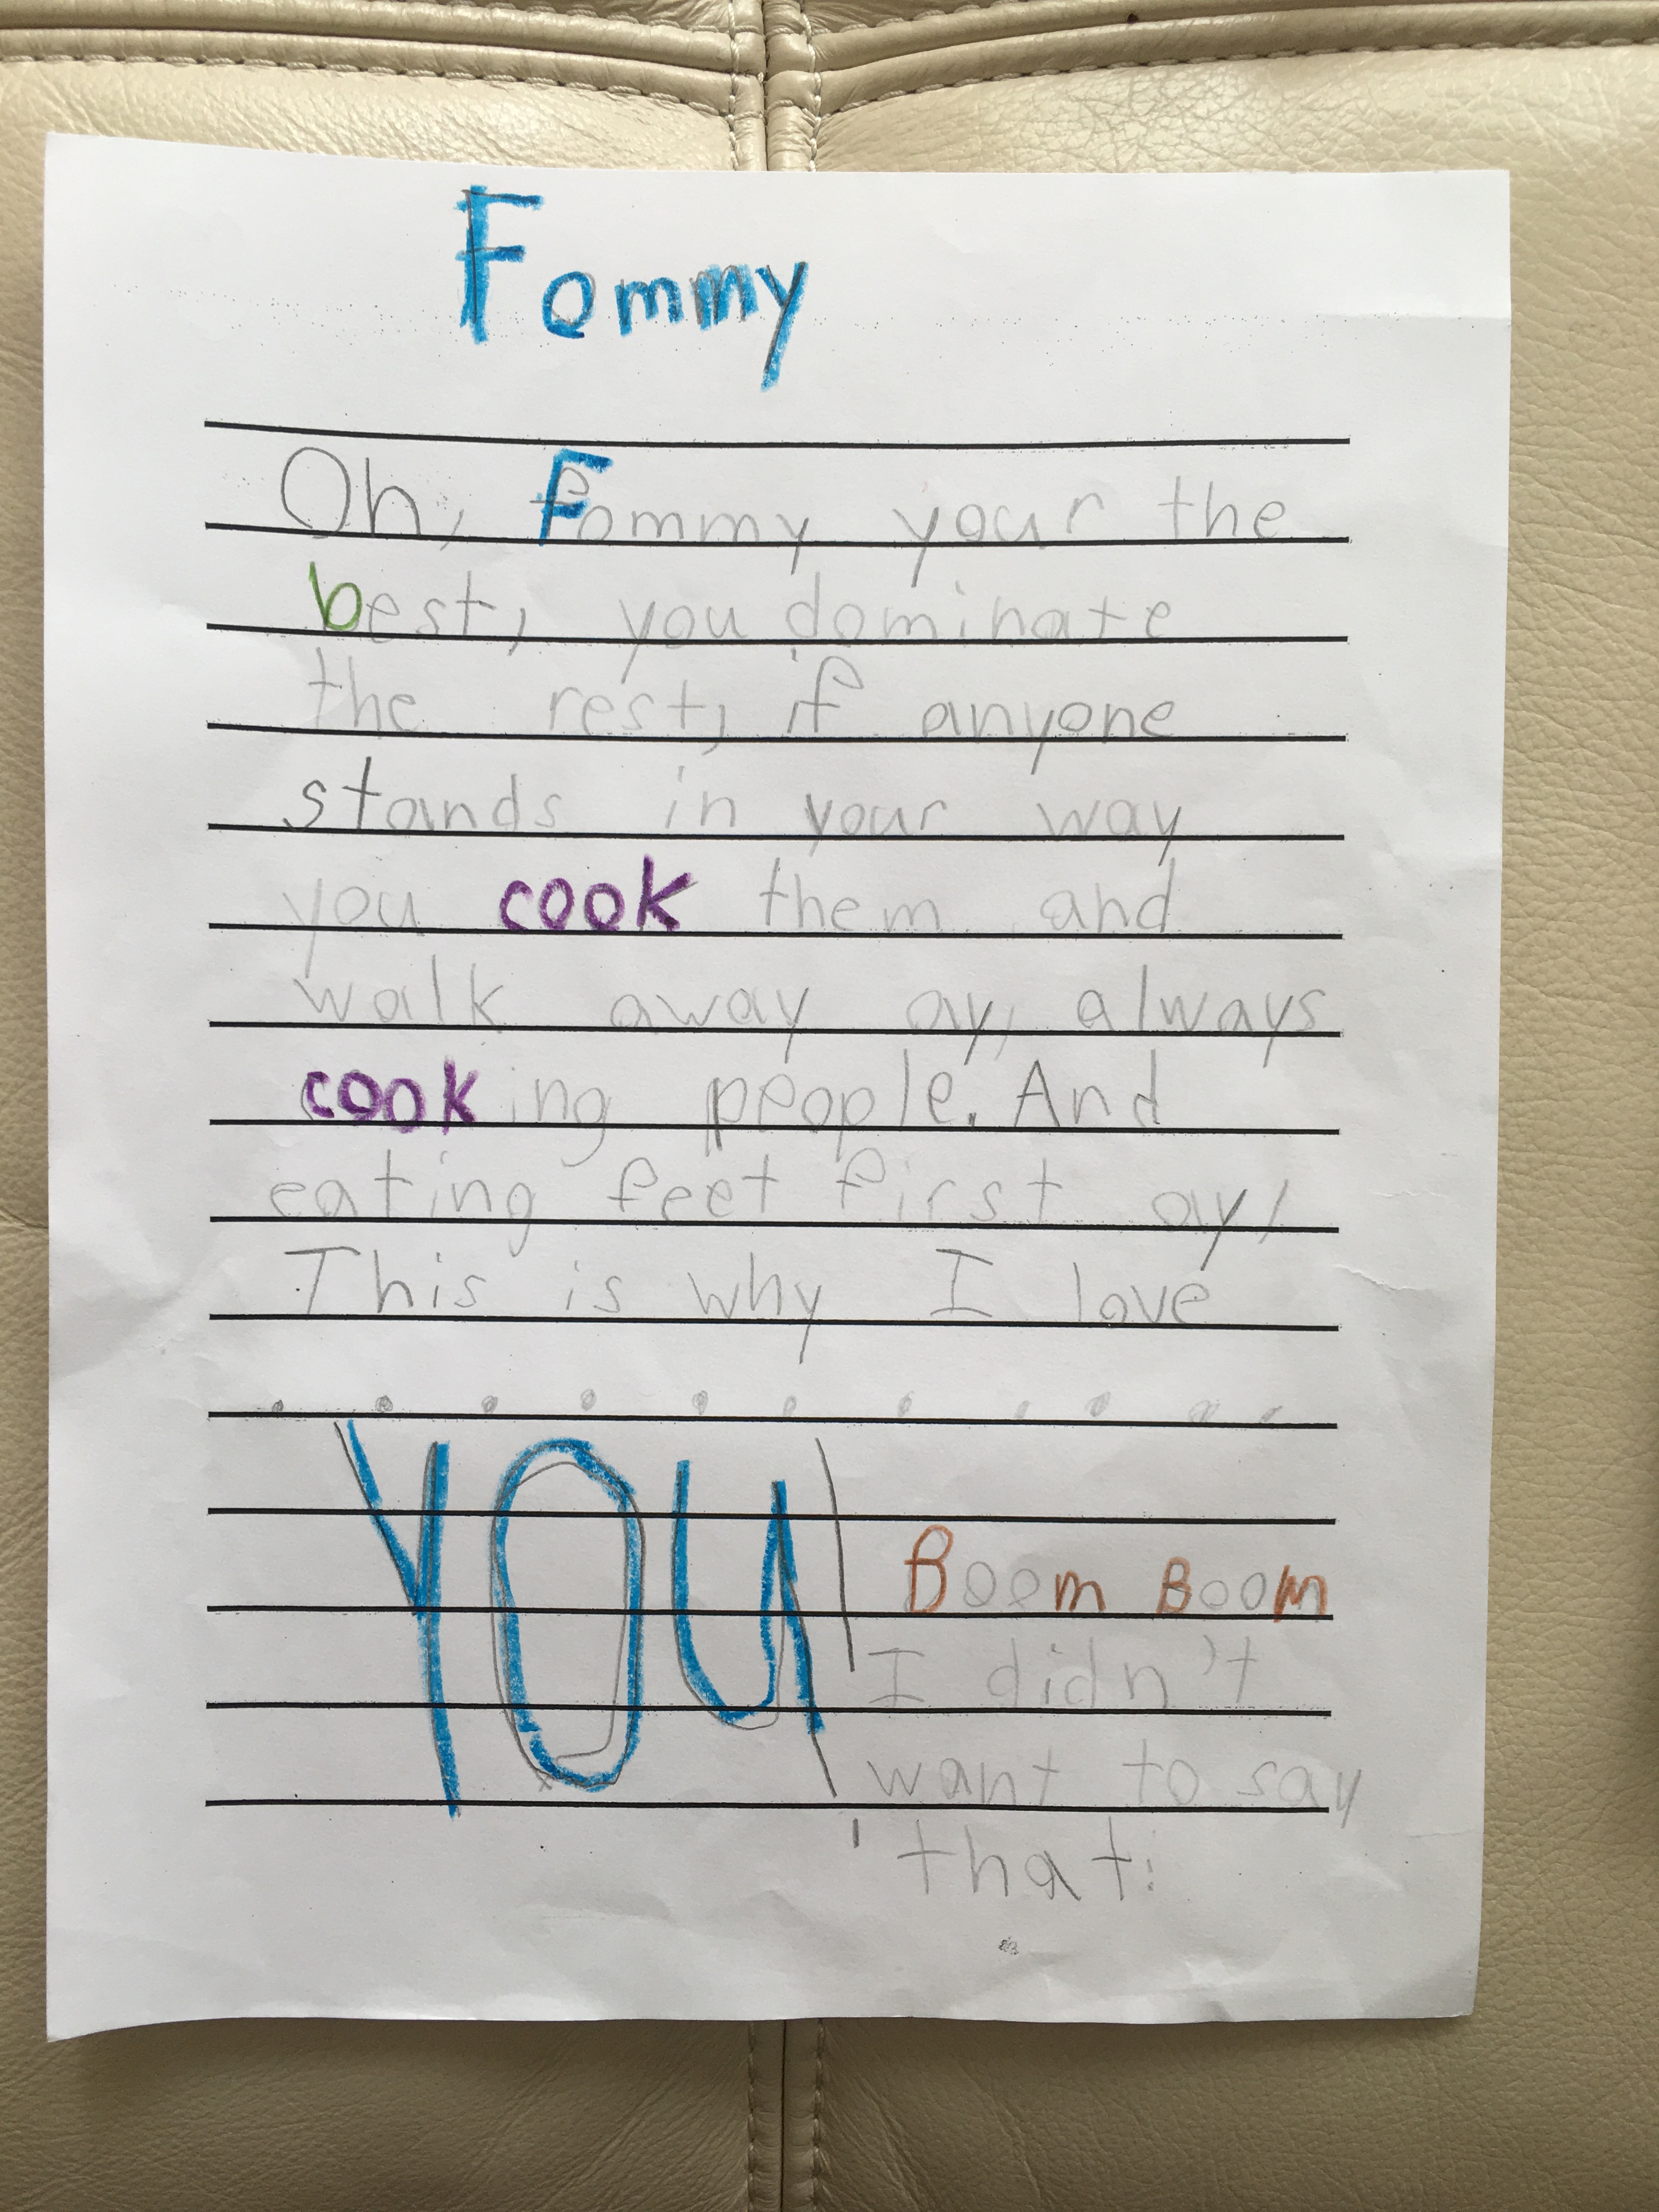 Fommy
Oh, Fommy your the
best, you dominate
the rest, if anyone
stands in your way
you cook them and
walk away ay, always
cooking people. And
eating feet first ay,
This is why I love
. . . . . . . . . . .
YOU
Boom Boom
I didn't
want to say
that.